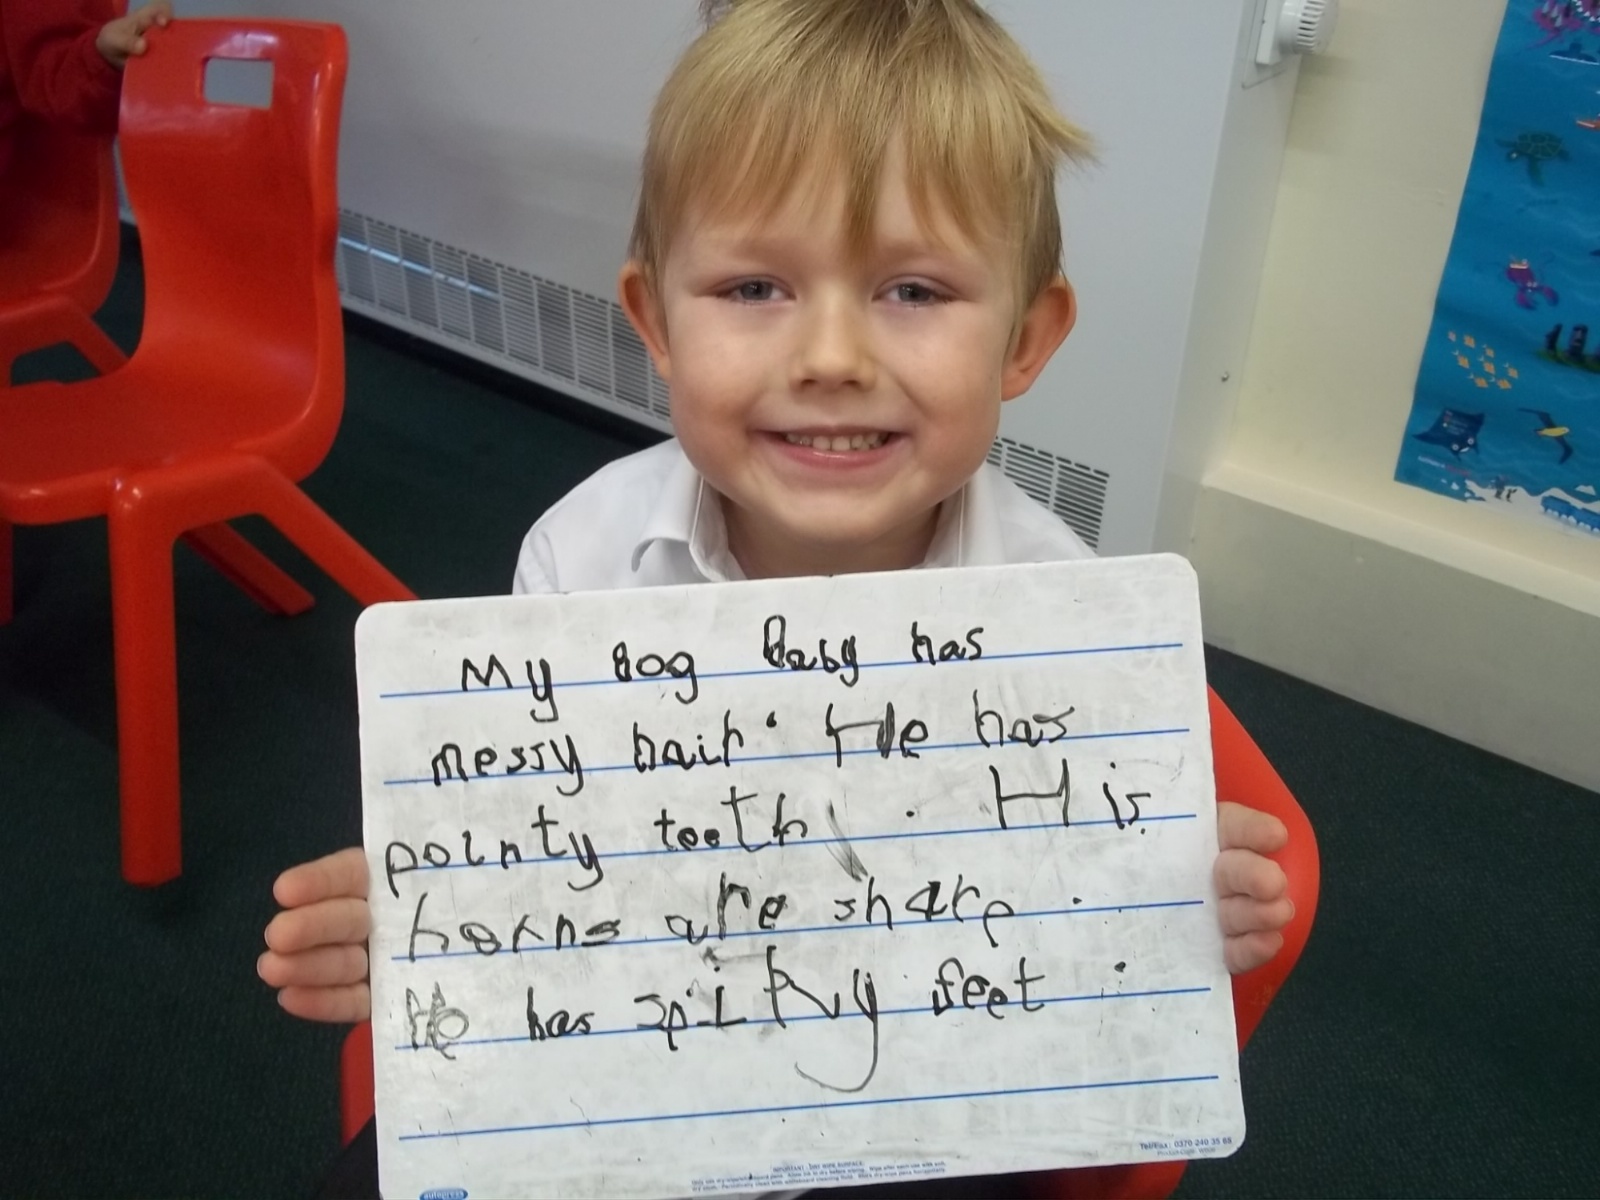 My dog Baby has
messy hair. He has
pointy teeth. His
horns are sharp.
He has spiky feet.
Tel/Fax: 0370 240 35 69